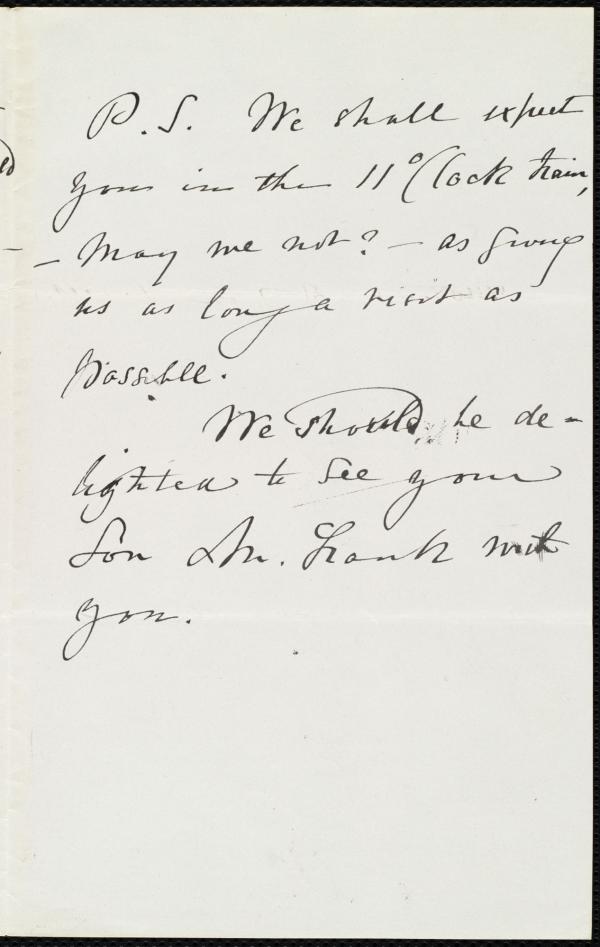 P.S. We shall expect
you in the 11 o'Clock train,
- May we not? - as giving
us as long a visit as
possible.
We should be de-
lighted to see your
Son Mr. Frank with
you.